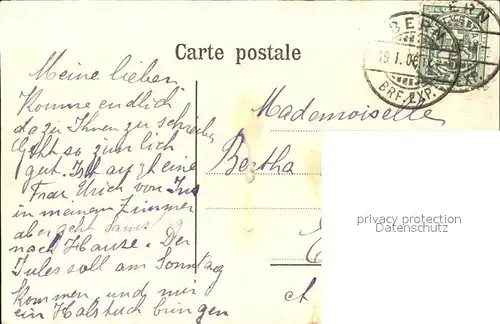 BERN
BERN
19.I.06
BRF. EXP.
Carte postale
Meine lieben
Komme endlich
dazu Ihnen zu schreiben
Geht so zimlich
gut. Ist auch eine
Frau Urich von Ins
in meinem Zimmer
aber geht Samstag
nach Hause. Der
Jules soll am Sonntag
kommen und mir
ein Halstuch bringen
Mademoiselle
Bertha
privacy protection
Datenschutz